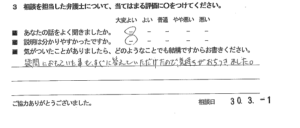 3 相談を担当した弁護士について、当てはまる評価に○をてください。
大変よい よい 普通 やや悪い 悪い
■ あなたの話をよく聞きましたか。 ○ − − − −
■ 説明は分かりやすかったですか。 ○ − − − −
■ 気がついたことがありましたら、どのようなことでも結構ですからお書きください。
疑問におもっていた事も、すぐに答えていただけたので、気持ちがおちつきました。
ご協力ありがとうございました。
相談日 30.3.-1